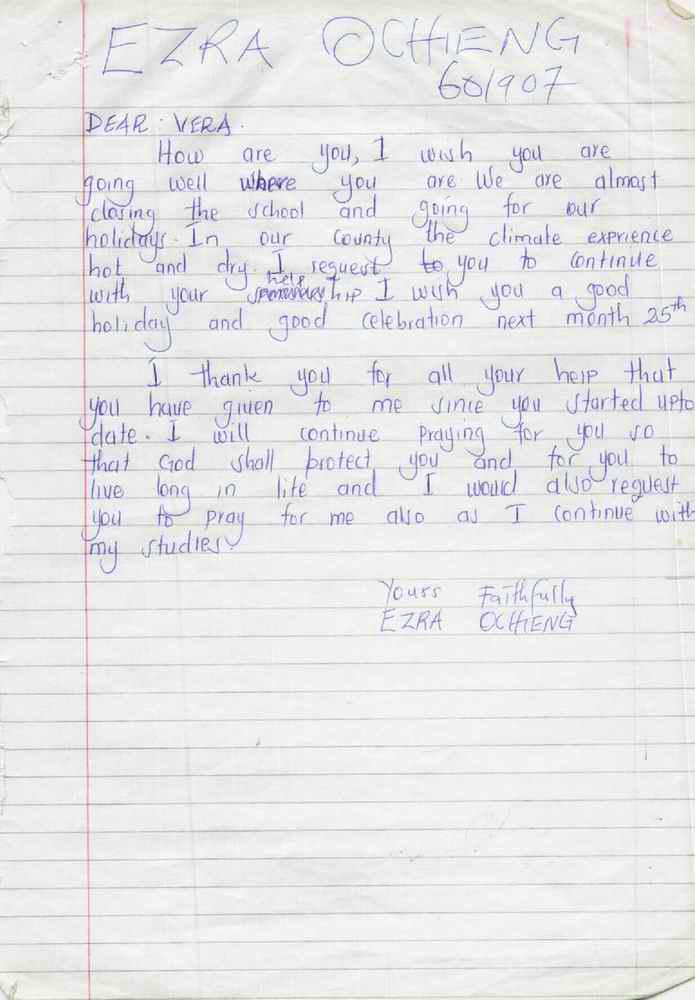 EZRA OCHIENG
601907
DEAR: VERA.
How are you, I wish you are
going well where you are We are almost
closing the school and going for our
holidays. In our County the climate exprience
hot and dry. I request to you to continue
help
with your hip I wish you a good
holiday and good celebration next month 25th
I thank you for all your help that
you have given to me since you started upto
date. I will continue praying for you so
that God shall protect you and for you to
live long in life and I would also request
you to pray for me also as I continue with
my studies.
Yours Faithfully
EZRA OCHIENG